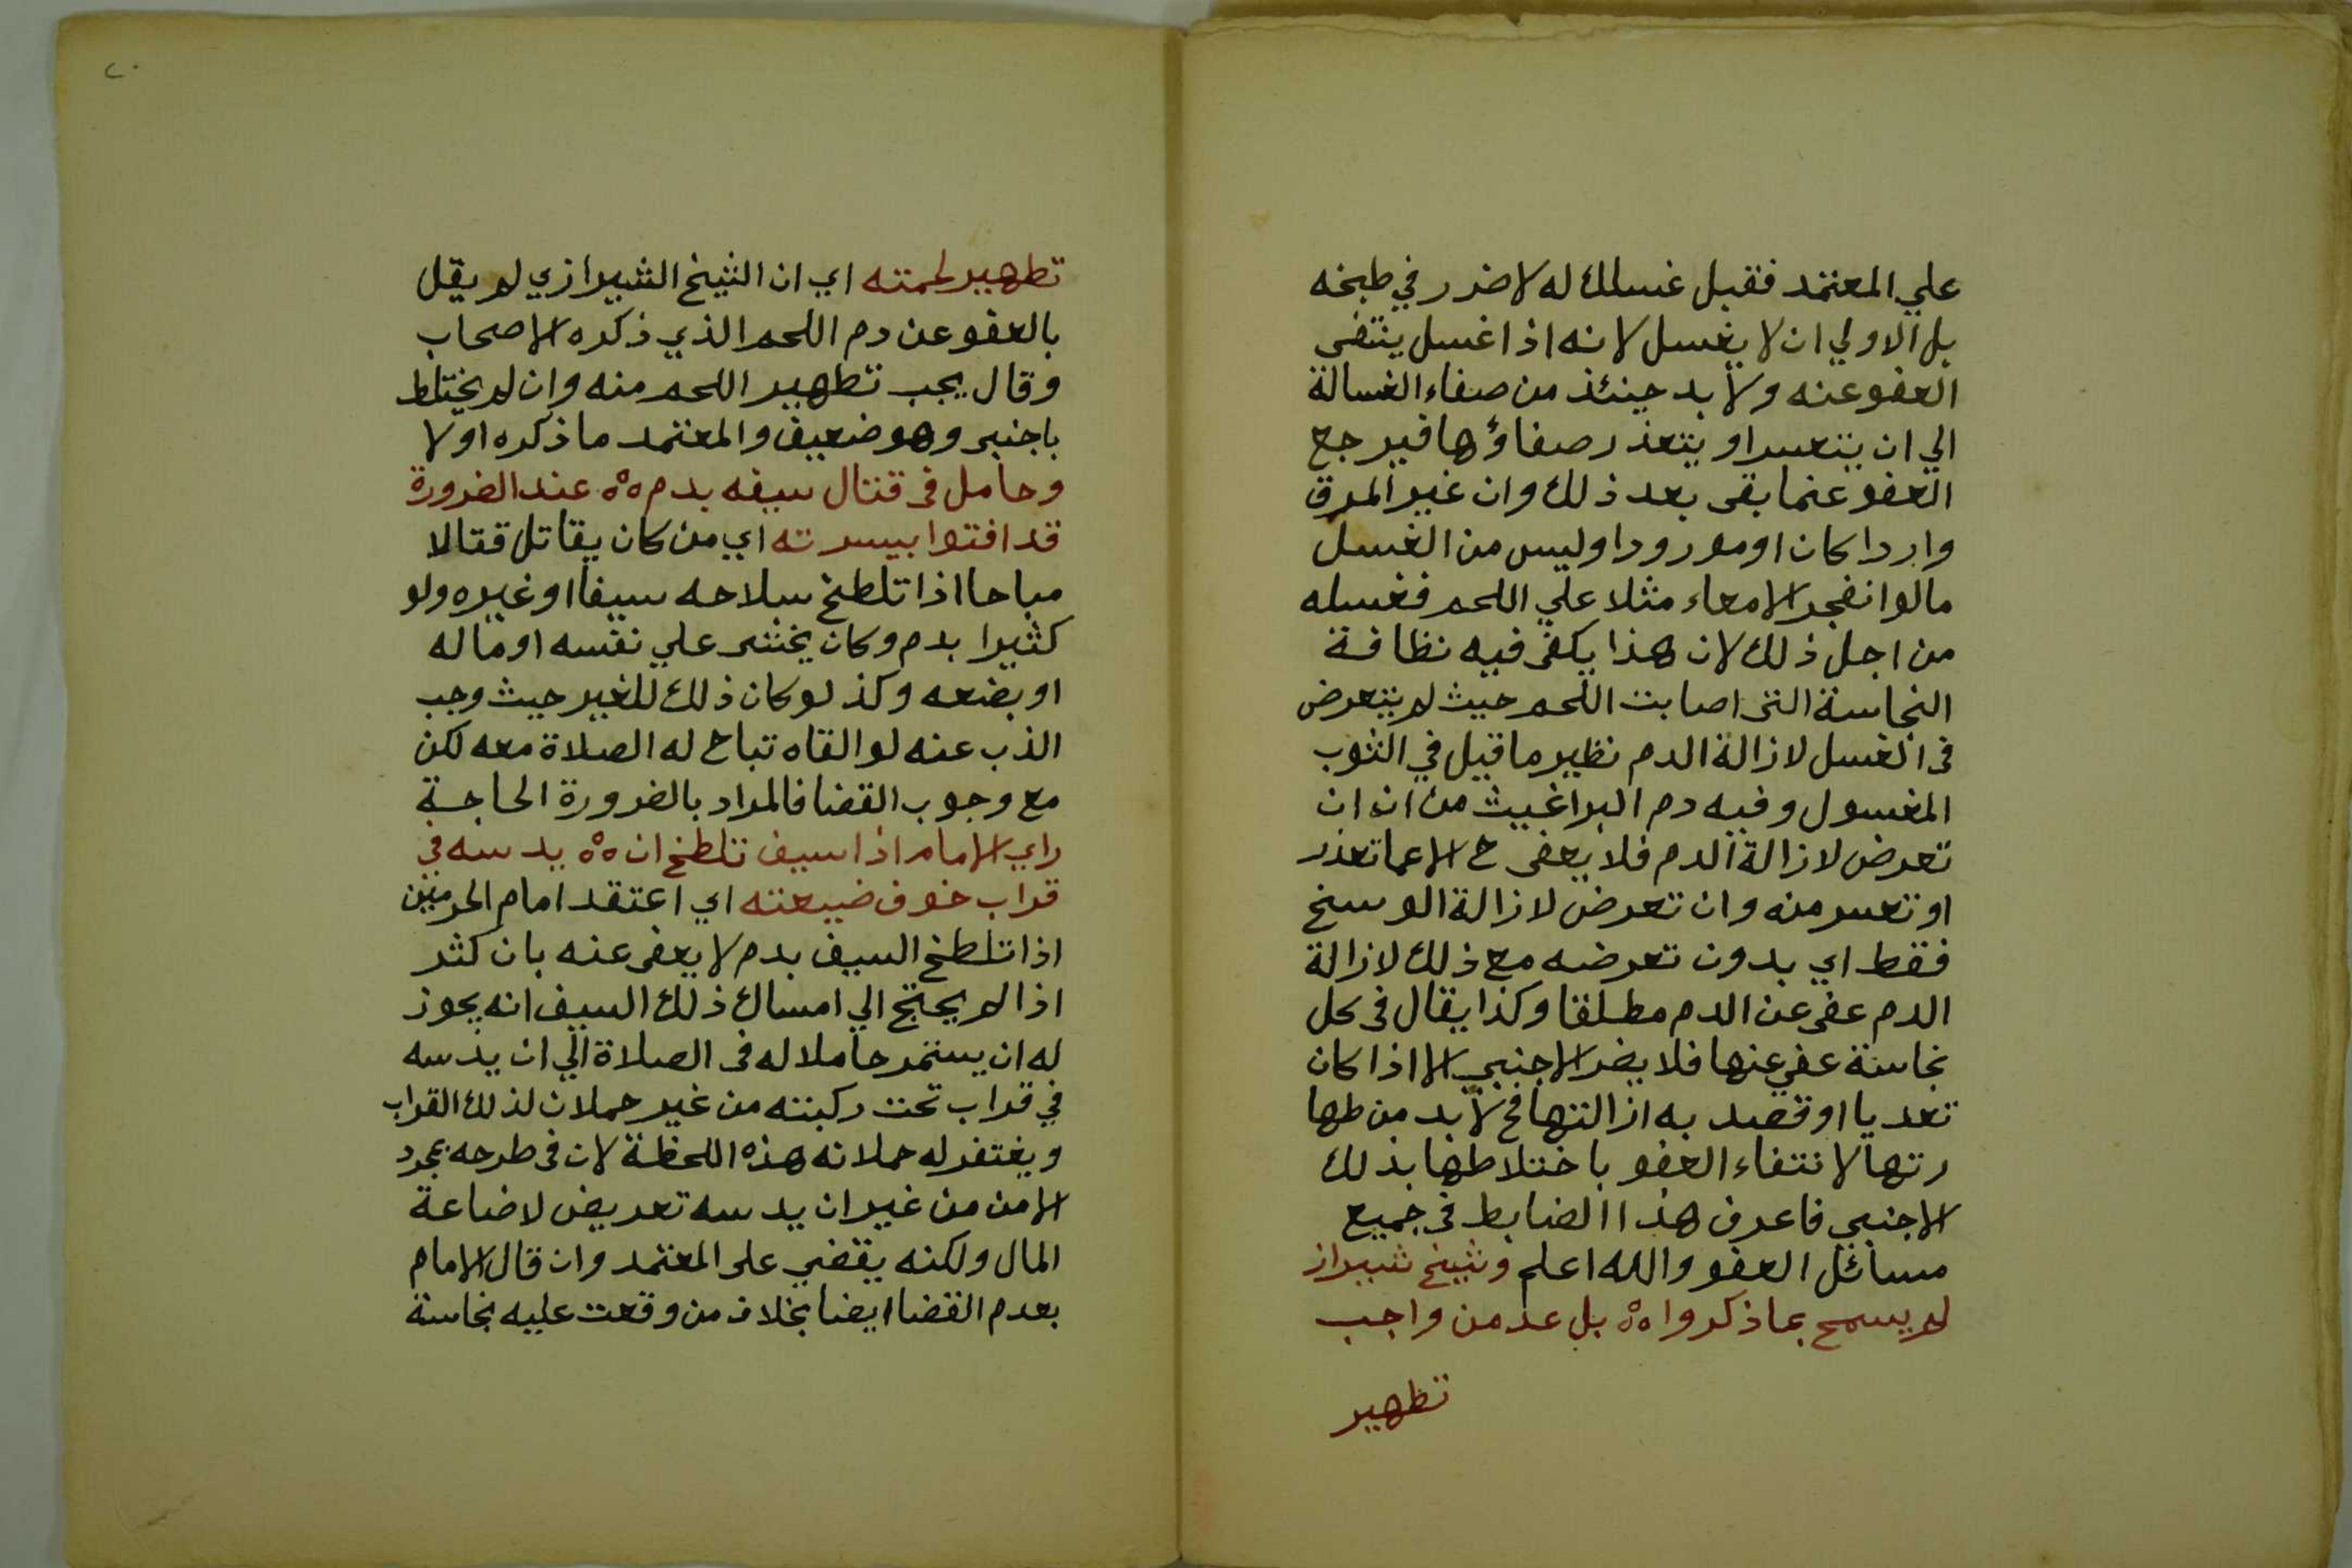 علي المعتمد فقبل غسلك له لا ضرر في طبخه
بل الاولي ان لا يغسل لانه اذا غسل ينتفى
العفو عنه ولا بد حينئذ من صفاء الغسالة
الي ان يتعسر او يتعذر صفاؤها فيرجع
العفو عنما بقى بعد ذلك وان غير المرق
واردا كان او مورودا وليس من الغسل
مالوا نفجر الامعاء مثلا علي اللحم فغسله
من اجل ذلك لان هذا يكفى فيه نظافة
النجاسة التى اصابت اللحم حيث لم يتعرض
فى الغسل لازالة الدم نظير ما قيل في الثوب
المغسول وفيه دم البراغيث من ان ان
تعرض لازالة الدم فلا يعفى ح الا عما تعذر
او تعسر منه وان تعرض لازالة الوسخ
فقط اي بدون تعرضه مع ذلك لازالة
الدم عفى عن الدم مطلقا وكذا يقال فى كل
نجاسة عفي عنها فلا يضر الاجنبي الا اذا كان
تعديا او قصد به ازالتها فح لا بد من طها
رتها لانتفاء العفو باختلاطها بذلك
الاجنبي فاعرف هذا الضابط فى جميع
مسائل العفو والله اعلم وشيخ شيراز
لم يسمح بما ذكروا ه‍ بل عد من واجب
تطهير
٢٠
تطهير لحمته اي ان الشيخ الشيرازي لم يقل
بالعفو عن دم اللحم الذي ذكره الاصحاب
وقال يجب تطهير اللحم منه وان لم يختلط
باجنبى وهو ضعيف والمعتمد ما ذكره اولا
وحامل فى قتال سيفه بدم ه‍ عند الضرورة
قد افتوا بيسرته اي من كان يقاتل قتالا
مباحا اذا تلطخ سلاحه سيفا او غيره ولو
كثيرا بدم وكان يخشى علي نفسه او ماله
او بضعه وكذ لو كان ذلك للغير حيث وجب
الذب عنه لو القاه تباح له الصلاة معه لكن
مع وجوب القضا فالمراد بالضرورة الحاجة
راي الامام اذا سيف تلطخ ان ه‍ يدسه في
قراب خوف ضيعته اي اعتقد امام الحرمين
اذا تلطخ السيف بدم لا يعفى عنه بان كثر
اذا لم يحتج الي امساك ذلك السيف انه يجوز
له ان يستمر حاملا له فى الصلاة الي ان يدسه
في قراب تحت ركبته من غير حملان لذلك القراب
ويغتفر له حملانه هذه اللحظة لان فى طرحه بمجرد
الامن من غير ان يدسه تعريض لاضاعة
المال ولكنه يقضي على المعتمد وان قال الامام
بعدم القضا ايضا بخلاف من وقعت عليه نجاسة